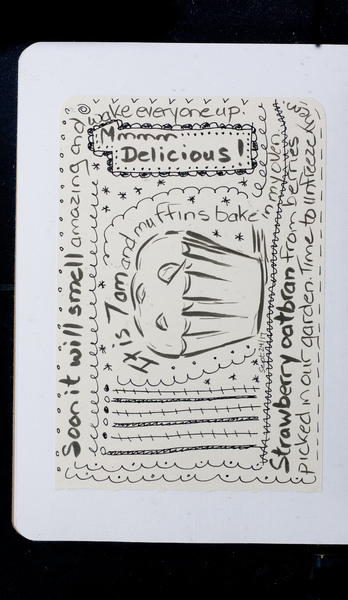 Mmmmm
Delicious!
It is 7am and muffins bake in my oven.
Strawberry oatbran from berries
picked in our garden. Time to unfreeze
Soon it will smell amazing and
wake everyone up
Sept 24/17